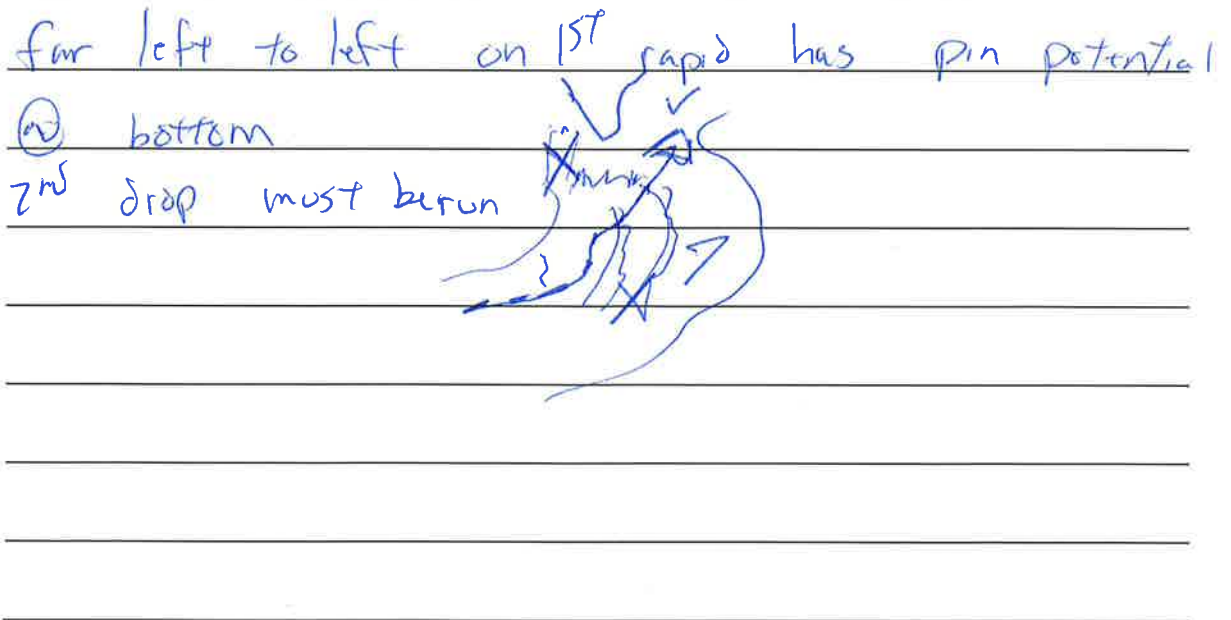 far left to left on 1ST rapid has pin potential
@ bottom
2nd drop must be run